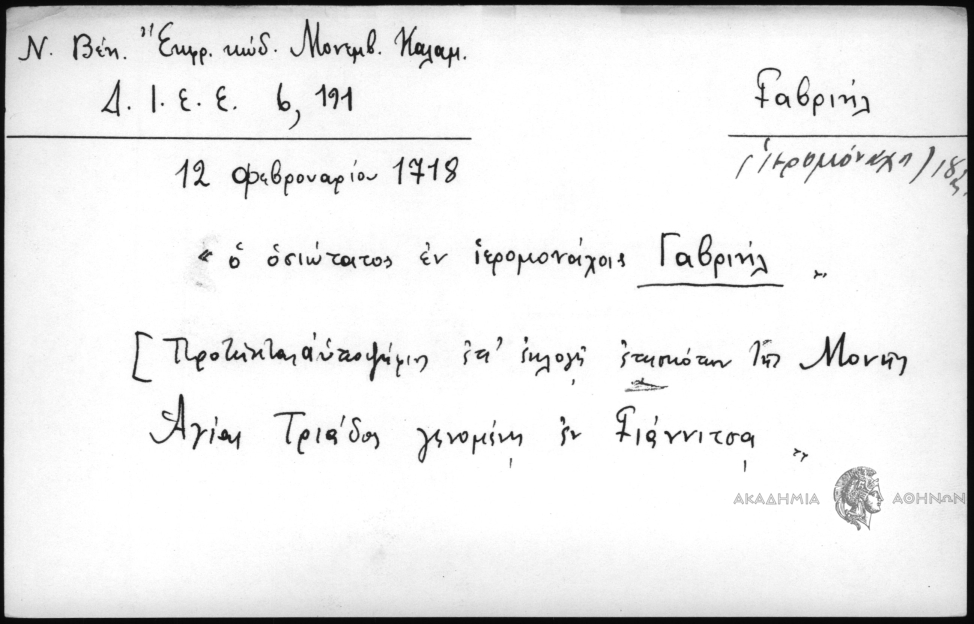 Ν. Βέη. Ἔκφρ. κώδ. Μονεμβ. Καλαμ.
Δ. Ι. Ε. Ε. 6, 191
Γαβριήλ
(ἱερομόναχη) 18
12 Φεβρουαρίου 1718
« ὁ ὁσιώτατος ἐν ἱερομονάχοις Γαβριήλ "
[ ἐπ' ἐκλογῇ τῆς Μονῆς
Ἁγίας Τριάδος γενομένης ἐν Γιάννιτσα "
ΑΚΑΔΗΜΙΑ ΑΘΗΝΩΝ